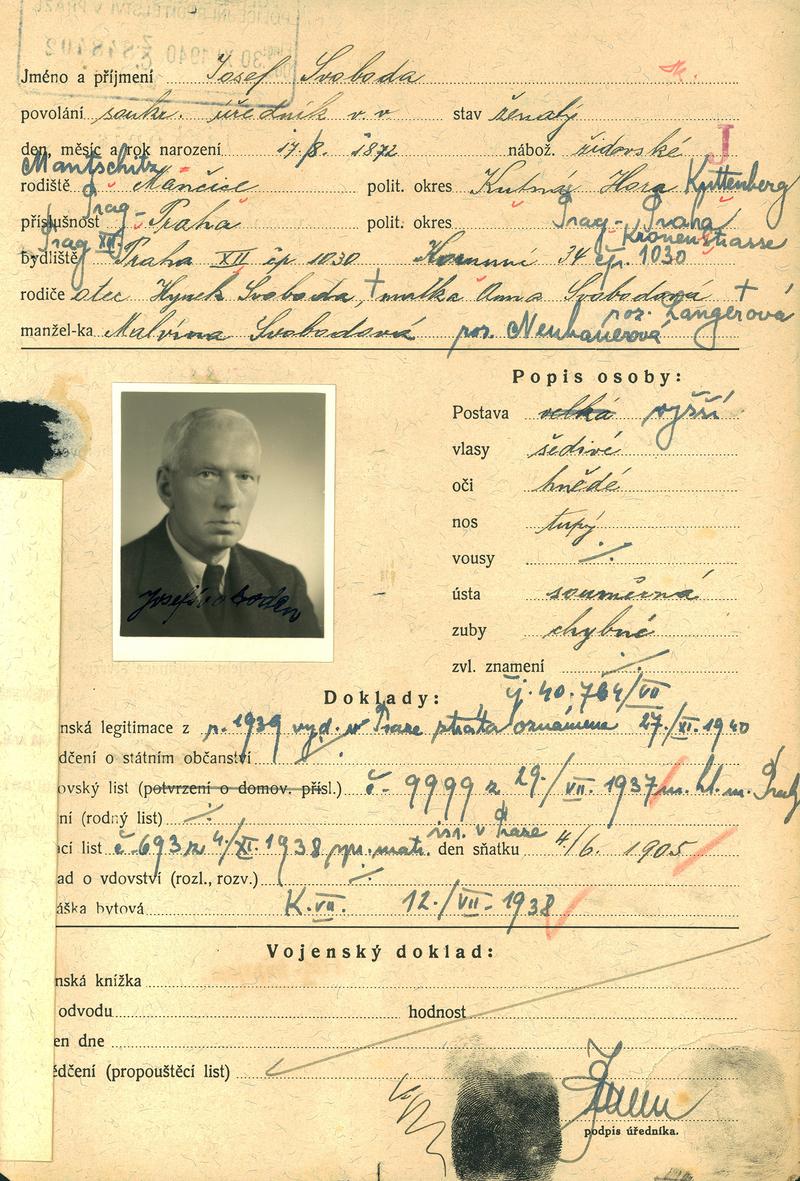 30 XI 1940
Jméno a příjmení Josef Svoboda
povolání soukr. úředník v. v. stav ženatý
den, měsíc a rok narození 17./8. 1872 nábož. židovské J
Mantschitz
rodiště Mančice polit. okres Kutná Hora Kuttenberg
Prag-
příslušnost Praha polit. okres Prag-Praha
Prag XII. Kronenstrasse
bydliště Praha XII čp 1030 34 čp. 1030
rodiče otec Hynek Svoboda, † matka Anna Svobodová †
roz. Langerová
manžel-ka Malvina Svobodová roz. Neuhauerová
Popis osoby:
Postava velká vyšší
vlasy šedivé
oči hnědé
nos tupý
vousy ./.
ústa souměrná
zuby chybné
zvl. znamení ./.
Josef Svoboda
Doklady:
čj. 40.764/VII
nská legitimace z r. 1939 vyd. v Praze ztráta oznámena 27./XI. 1940
dčení o státním občanství
ovský list (potvrzení o domov. přísl.) č. 9999 z 29./VII. 1937 m. hl. m. Prahy
ní (rodný list) ./.
isr. v Praze
cí list č. 693 z 4./XI. 1938 den sňatku 4./6. 1905
ad o vdovství (rozl., rozv.) ./.
áška bytová K. VII. 12./VII. 1938
Vojenský doklad:
nská knížka
odvodu hodnost
en dne
ědčení (propouštěcí list)
podpis úředníka.